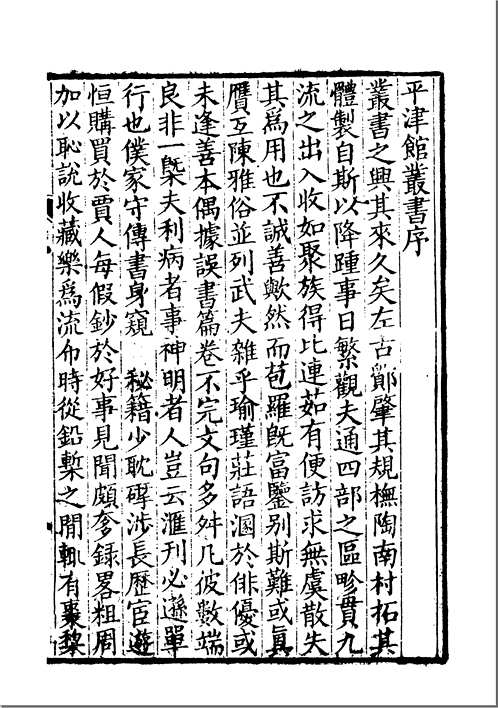 平津館叢書序
叢書之興其來久矣左古鄮肇其規橅陶南村拓其
體製自斯以降踵事日繁觀夫通四部之區畛貫九
流之出入收如聚族得比連茹有便訪求無虞散失
其爲用也不誠善歟然而苞羅旣富鑒别斯難或眞
贋互陳雅俗並列武夫雜乎瑜瑾莊語溷於俳優或
未逢善本偶據誤書篇卷不完文句多舛凡彼數端
良非一槩夫利病者事神明者人豈云滙刊必遜單
行也僕家守傳書身窺 秘籍少耽碑涉長歷宦遊
恒購買於賈人每假鈔於好事見聞頗夥録畧粗周
加以恥說收藏樂爲流布時從鉛槧之閒輒有棗棃